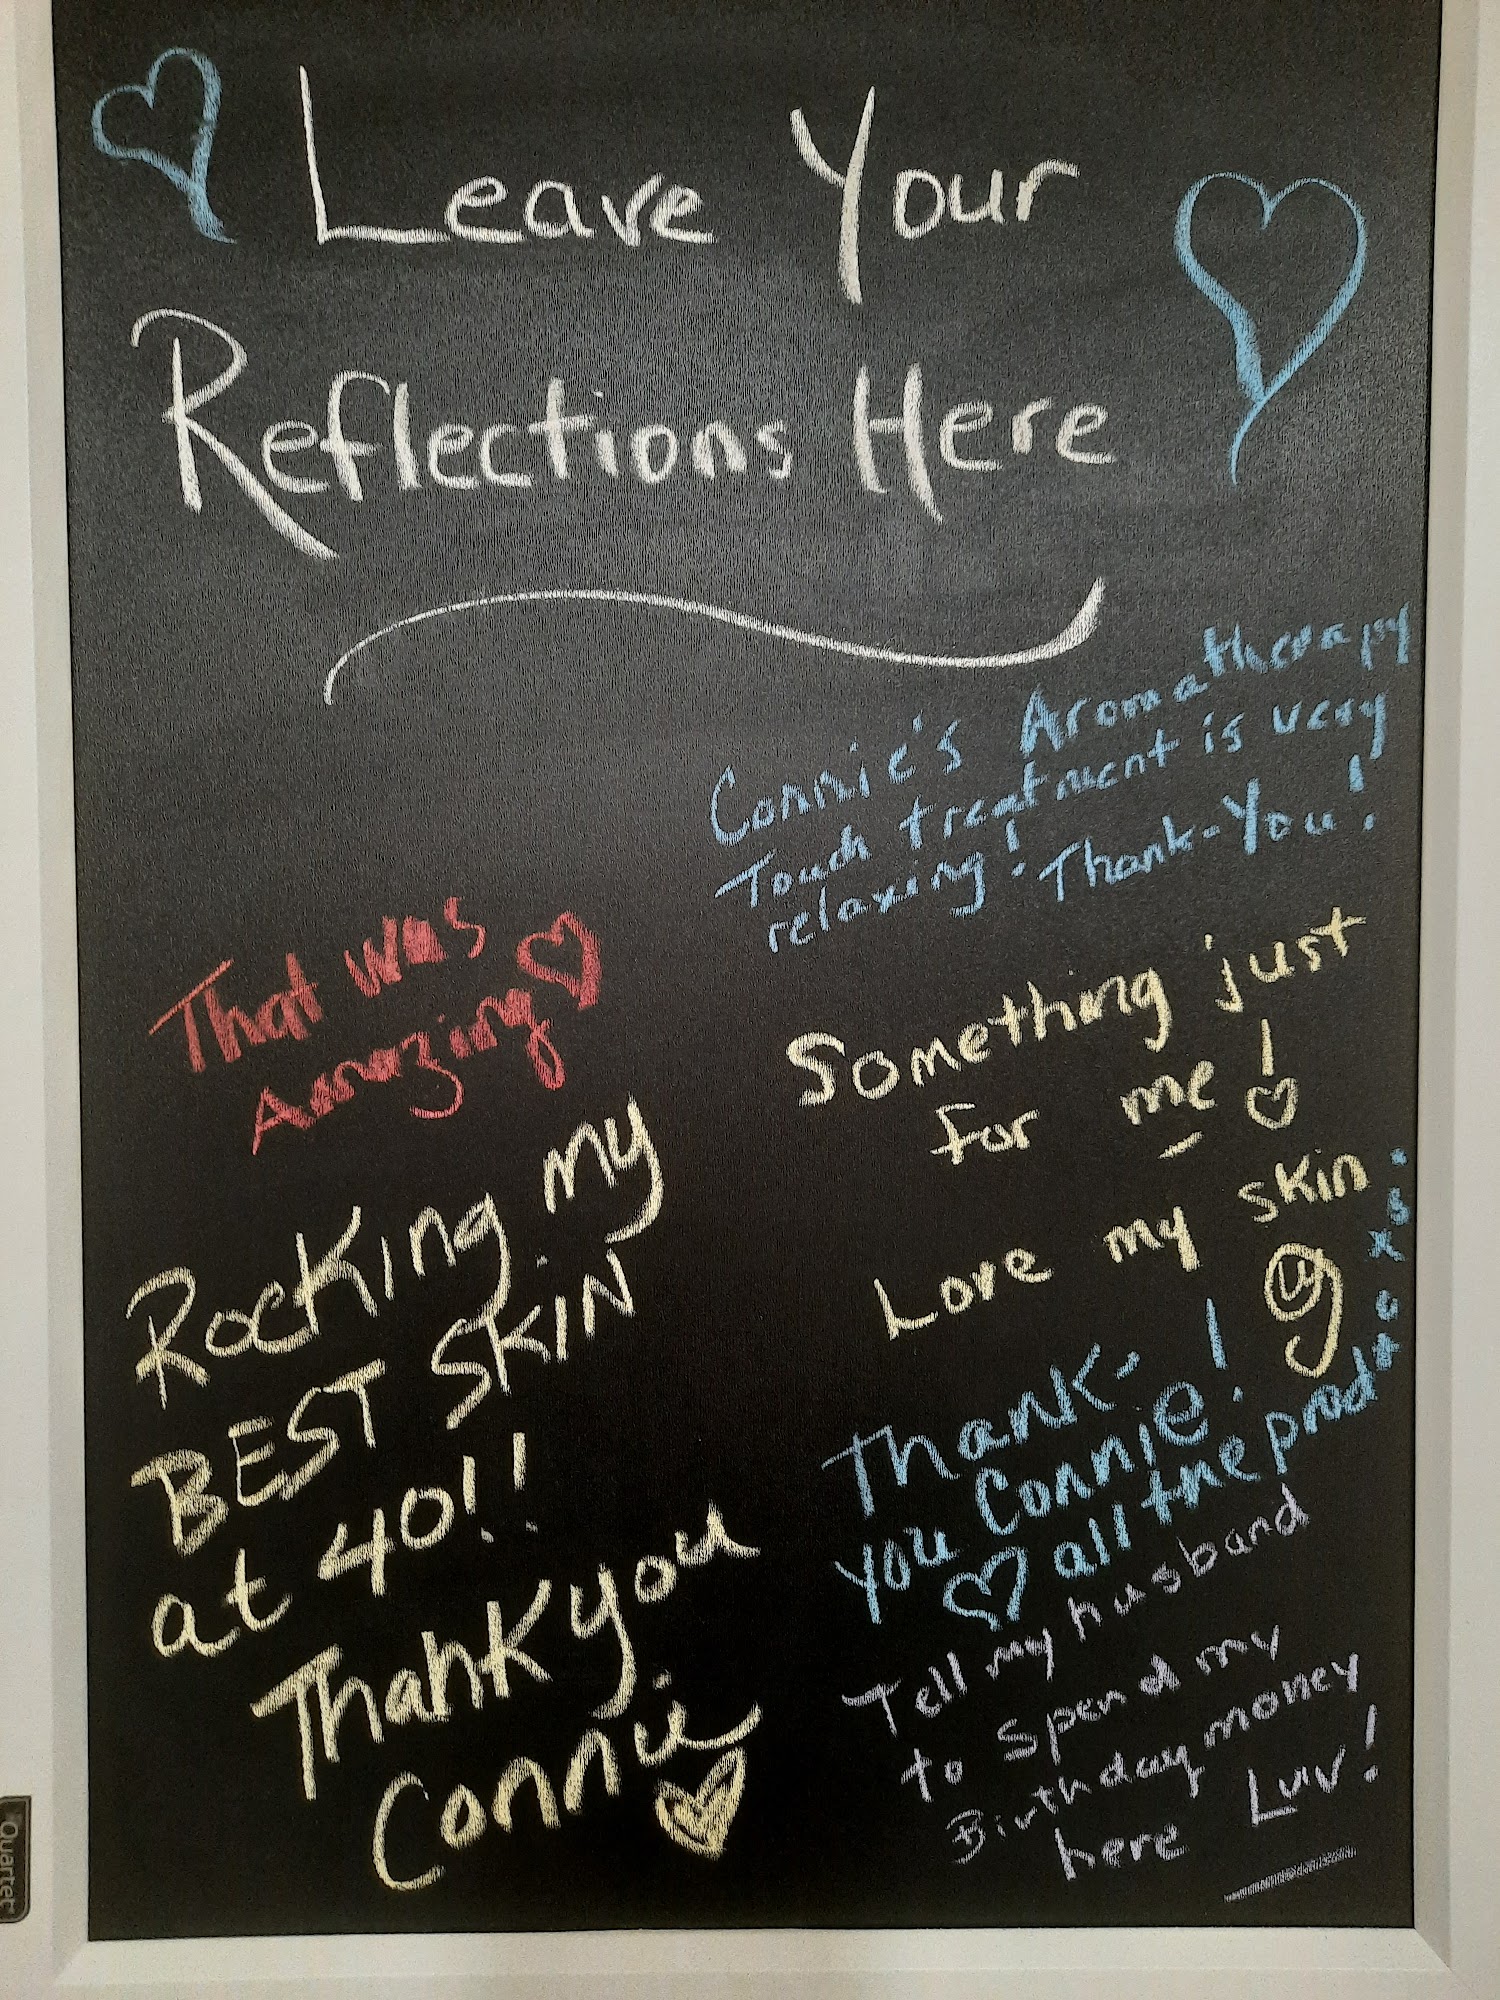 Leave Your
Reflections Here
Connie's Aromatherapy
Touch treatment is very
relaxing! Thank-You!
That was
Amazing
Something just
for me!
Rocking my
BEST SKIN
at 40!!
Thank you
Connie
Love my skin
Thank-
you Connie!
all the products.
Tell my husband
to spend my
Birthday money
here Luv!
Quartet